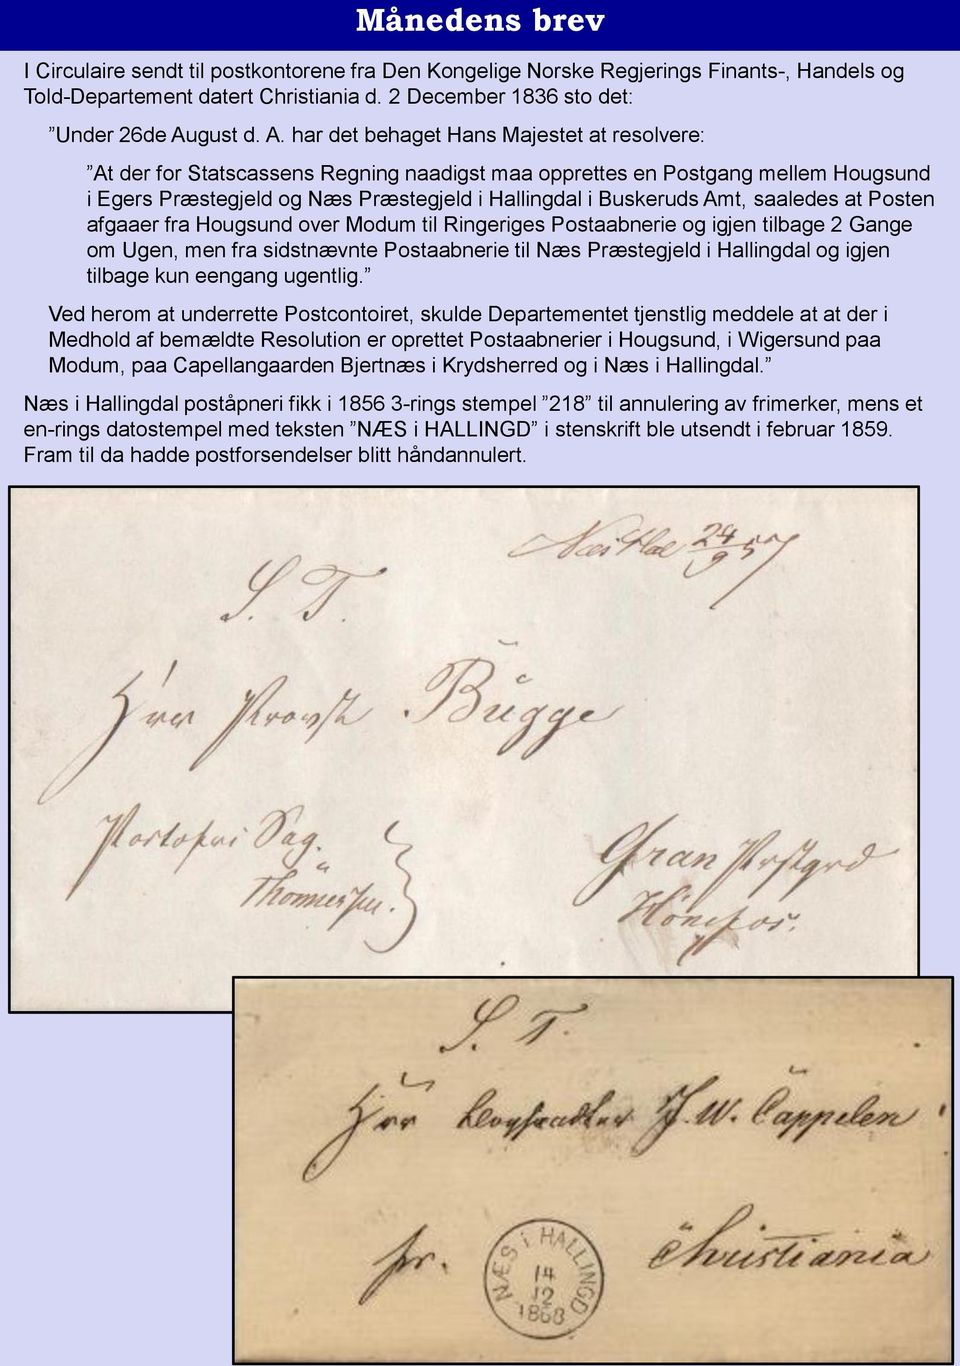 Månedens brev
I Circulaire sendt til postkontorene fra Den Kongelige Norske Regjerings Finants-, Handels og
Told-Departement datert Christiania d. 2 December 1836 sto det:
”Under 26de August d. A. har det behaget Hans Majestet at resolvere:
”At der for Statscassens Regning naadigst maa opprettes en Postgang mellem Hougsund
i Egers Præstegjeld og Næs Præstegjeld i Hallingdal i Buskeruds Amt, saaledes at Posten
afgaaer fra Hougsund over Modum til Ringeriges Postaabnerie og igjen tilbage 2 Gange
om Ugen, men fra sidstnævnte Postaabnerie til Næs Præstegjeld i Hallingdal og igjen
tilbage kun eengang ugentlig.”
Ved herom at underrette Postcontoiret, skulde Departementet tjenstlig meddele at at der i
Medhold af bemældte Resolution er oprettet Postaabnerier i Hougsund, i Wigersund paa
Modum, paa Capellangaarden Bjertnæs i Krydsherred og i Næs i Hallingdal.”
Næs i Hallingdal poståpneri fikk i 1856 3-rings stempel ”218” til annulering av frimerker, mens et
en-rings datostempel med teksten ”NÆS i HALLINGD” i stenskrift ble utsendt i februar 1859.
Fram til da hadde postforsendelser blitt håndannulert.
24/9 57
S. T.
Hrr Provst Bugge
Portofri Sag.
Gran Prstgrd
Thönnessen.
Hönefos.
S. T.
Hrr J. W. Cappelen
pr. Christiania
NÆS i HALLINGD
14
12
1868